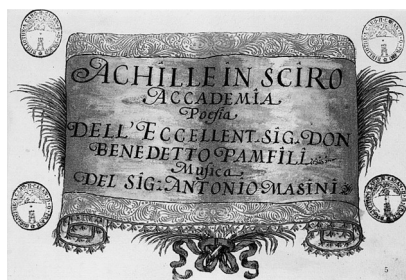 ACHILLE IN SCIRO
ACCADEMIA
Poesia
DELL'ECCELLENT. SIG. DON
BENEDETTO PAMFILI
Musica
DEL SIG: ANTONIO MASINI
5